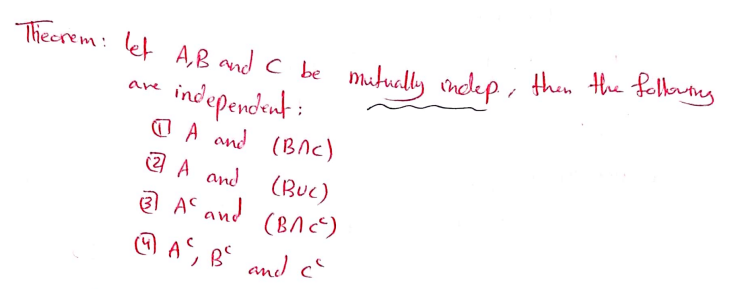 Theorem: let A,B and C be mutually indep, then the following
are independent:
① A and (B∩C)
② A and (B∪C)
③ Aᶜ and (B∩Cᶜ)
④ Aᶜ, Bᶜ and Cᶜ